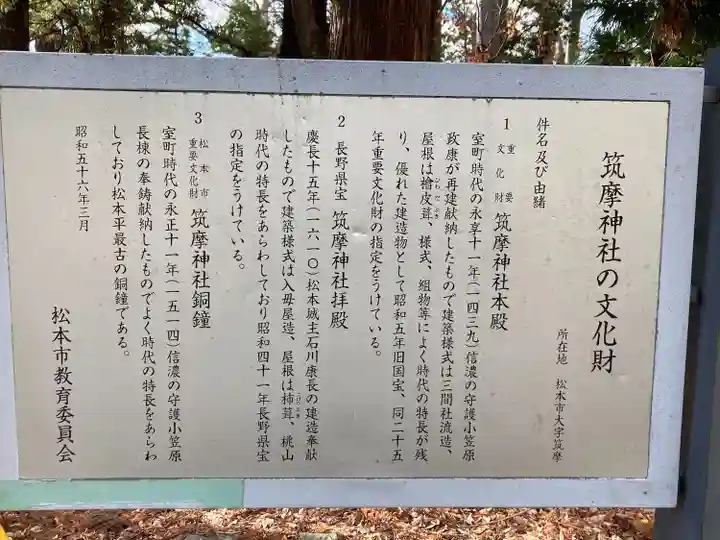 筑摩神社の文化財
所在地 松本市大字筑摩
件名及び由緒
1 重要文化財 筑摩神社本殿
室町時代の永享十一年(一四三九)信濃の守護小笠原
政康が再建献納したもので建築様式は三間社流造、
屋根は檜皮葺、様式、組物等によく時代の特長が残
り、優れた建造物として昭和五年旧国宝、同二十五
年重要文化財の指定をうけている。
2 長野県宝 筑摩神社拝殿
慶長十五年(一六一〇)松本城主石川康長の建造奉献
したもので建築様式は入毋屋造、屋根は杮葺、桃山
時代の特長をあらわしており昭和四十一年長野県宝
の指定をうけている。
3 松本市重要文化財 筑摩神社銅鐘
室町時代の永正十一年(一五一四)信濃の守護小笠原
長棟の奉鋳献納したものでよく時代の特長をあらわ
しており松本平最古の銅鐘である。
昭和五十六年三月
松本市教育委員会